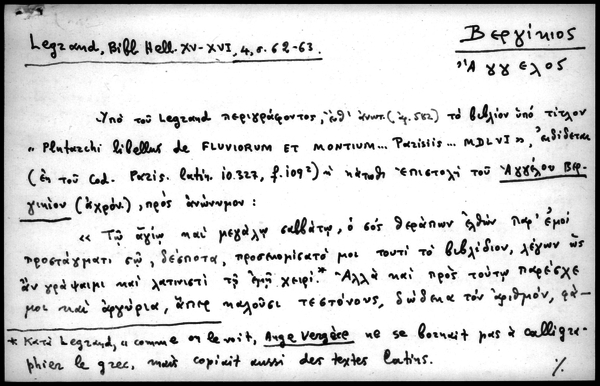 Βεργίκιος
Legrand, Bibl. Hell. XV-XVI, 4, σ. 62-63.
Ἄγγελος
Ὑπὸ τοῦ Legrand περιγράφοντος, ἔνθ' ἀνωτ. (ἀρ. 562) τὸ βιβλίον ὑπὸ τίτλον
« Plutarchi libellus de FLUVIORUM ET MONTIUM... Parisiis... MDLVI », ἐκδίδεται
(ἐκ τοῦ Cod. Paris. latin. 10.327, f. 109²) ἡ κάτωθι ἐπιστολὴ τοῦ Ἀγγέλου Βερ-
γικίου (ἀχρόν.), πρὸς ἀνώνυμον :
« Τῷ ἁγίῳ καὶ μεγάλῳ σαββάτῳ, ὁ σὸς θεράπων ἐλθὼν παρ' ἐμοὶ
προστάγματι σῷ, δέσποτα, προσεκόμισατό μοι τουτὶ τὸ βιβλίδιον, λέγων ὡς
ἂν γράψαιμι καὶ λατινιστὶ τῇ ἐμῇ χειρί.* Ἀλλὰ καὶ πρὸς τούτῳ παρέσχε
μοι καὶ ἀργύρια, ἅπερ καλοῦσι τεστόνους, δώδεκα τὸν ἀριθμόν, φά-
* Κατὰ Legrand, « comme on le voit, Ange Vergèce ne se bornait pas à calligra-
phier le grec, mais copiait aussi des textes latins.
%